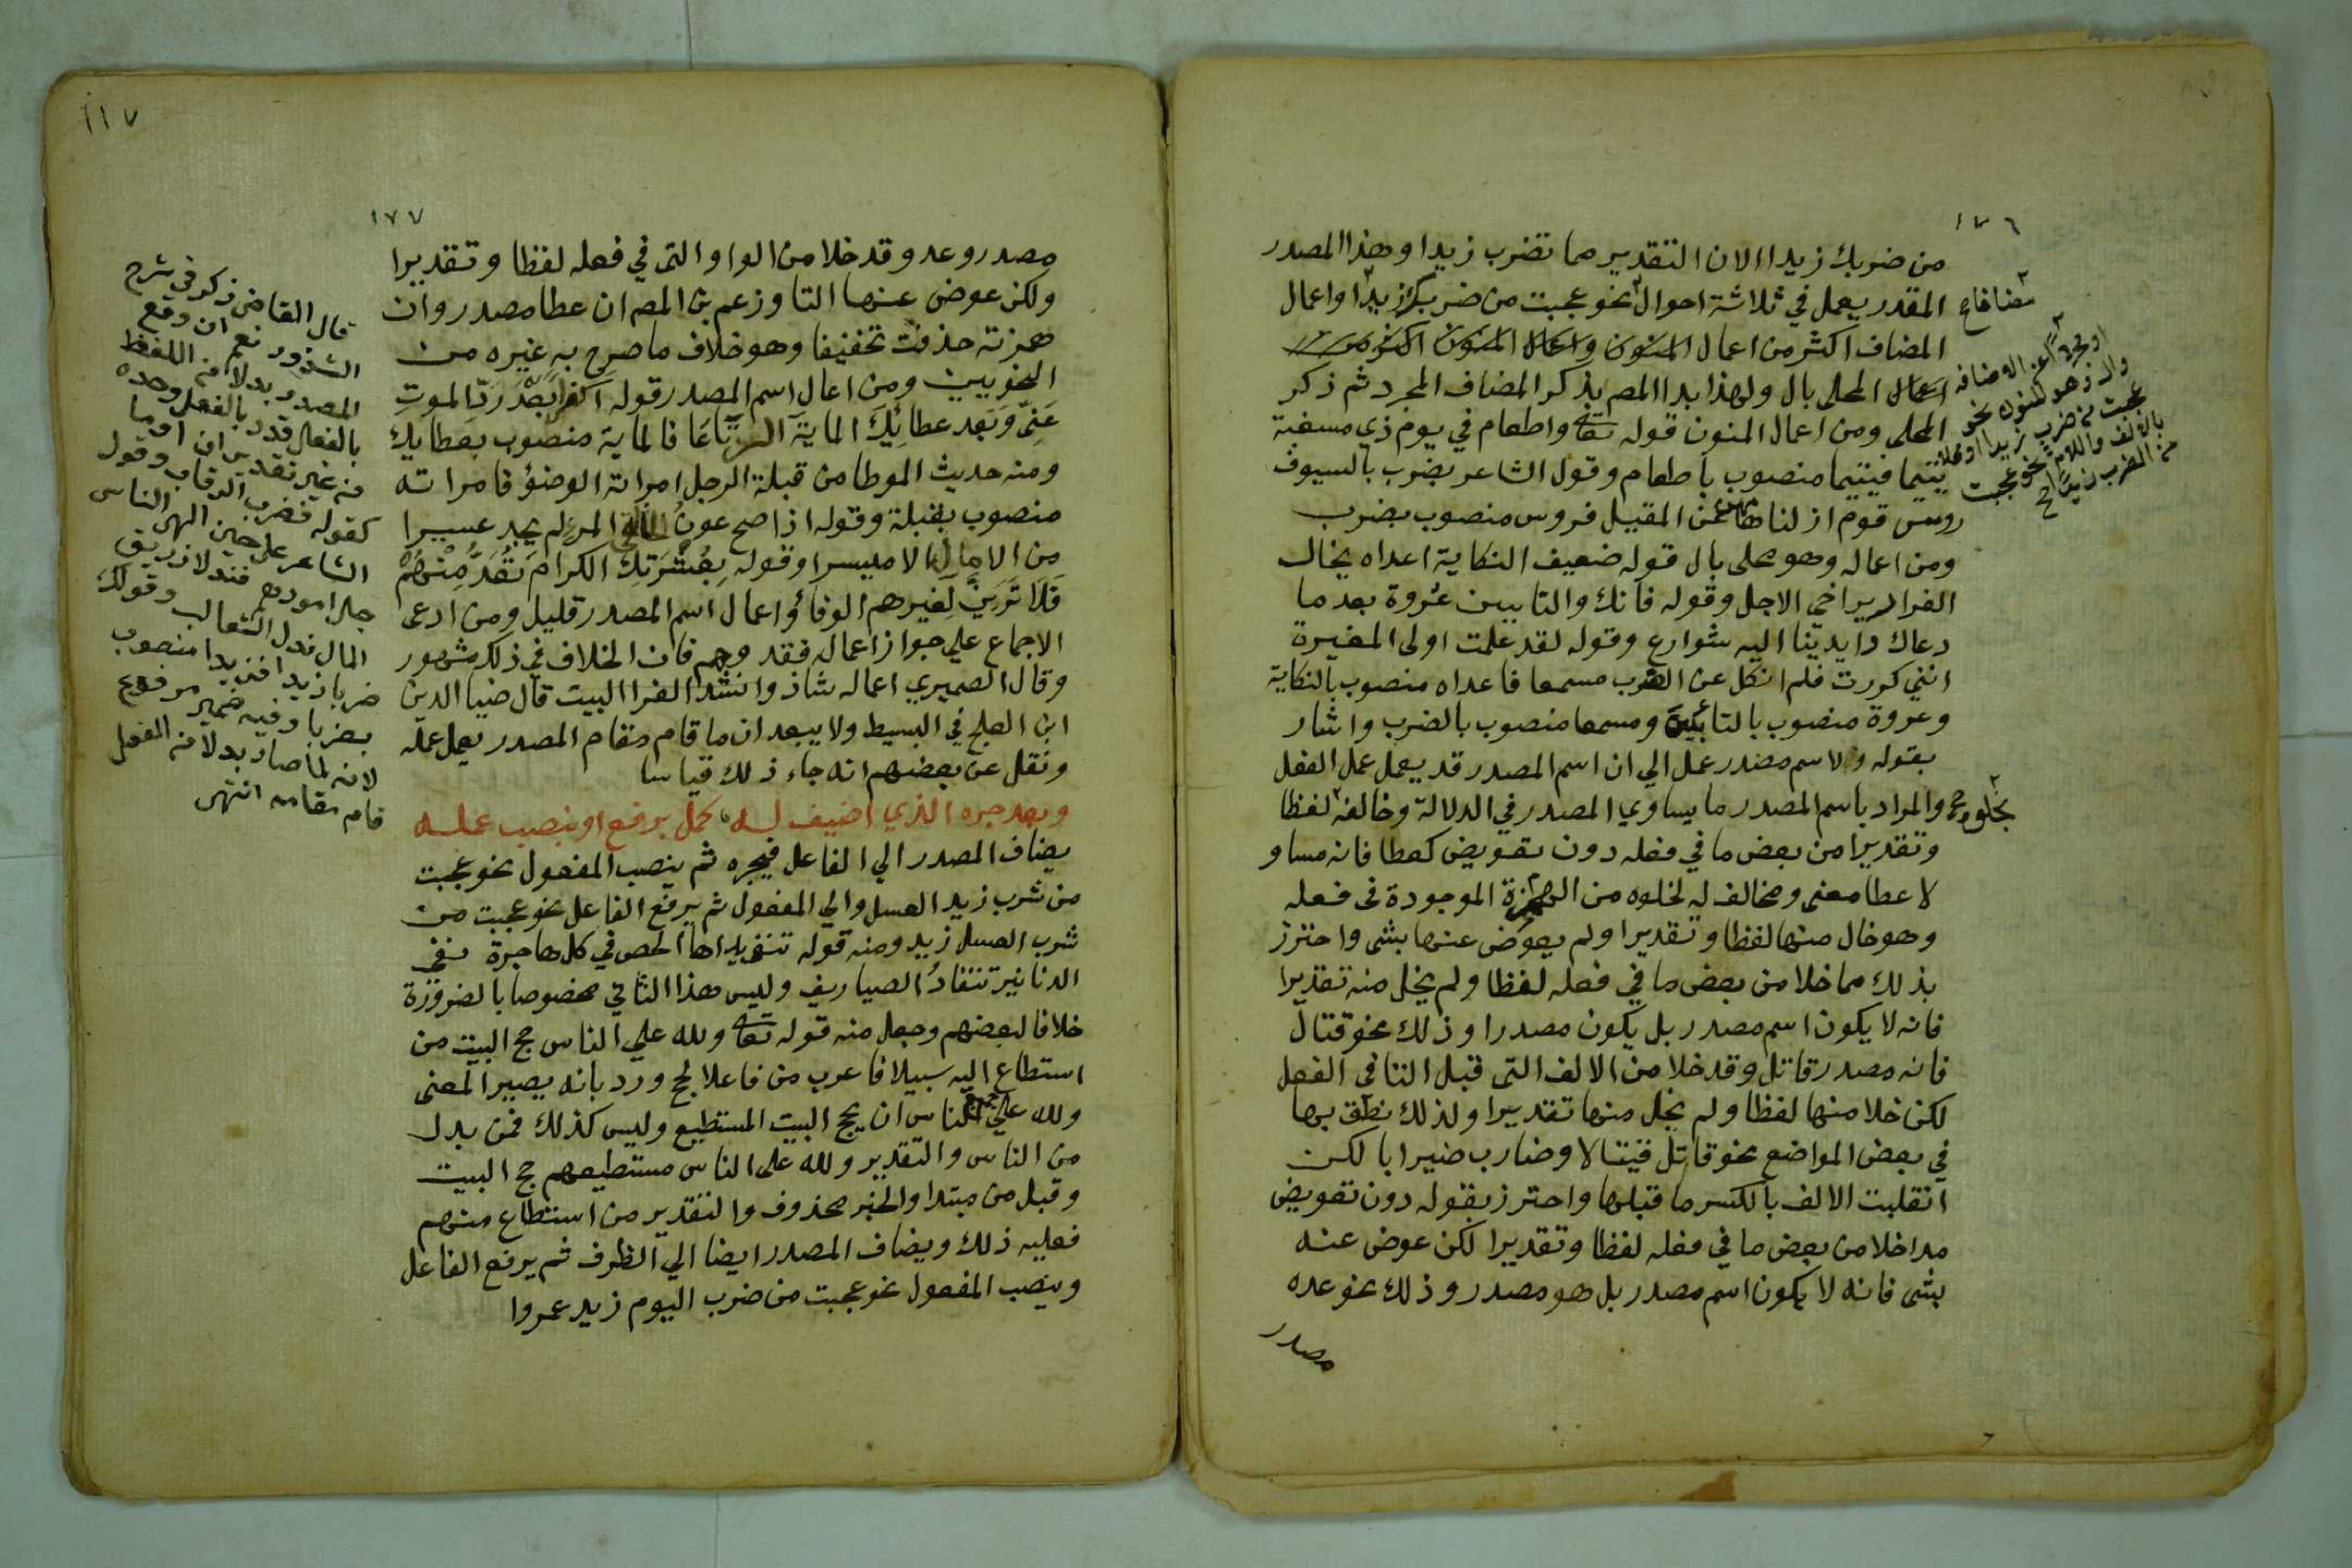 ١٧٦
من ضربك زيدا الان التقدير مما تضرب زيدا وهذا المصدر
المقدر يعمل في ثلاثة احوال نحو عجبت من ضربك زيدا واعمال
المضاف اكثر من اعمال المنون واعمال المنون اكثر من
اعمال المحلى بال ولهذا بدا المصر بذكر المضاف المجرد ثم ذكر
المحلى ومن اعمال المنون قوله تعا واطعام في يوم ذي مسغبة
يتيما فيتيما منصوب باطعام وقول الشاعر بضرب بالسيوف
روس قوم ازلنا هامهن عن المقيل فروس منصوب بضرب
ومن اعماله وهو محلى بال قوله ضعيف النكاية اعداه يخال
الفرار يراخي الاجل وقوله فانك والتابيين عُروة بعدما
دعاك وايدينا اليه شوارع وقوله لقد علمت اولى المغيرة
انني كررت فلم انكل عن الضرب مسمعا فاعداه منصوب بالنكاية
وعروة منصوب بالتابين ومسمعا منصوب بالضرب واشار
بقوله ولاسم مصدر عمل الي ان اسم المصدر قد يعمل عمل الفعل
والمراد باسم المصدر ما يساوي المصدر في الدلالة وخالفه لفظا
وتقديرا من بعض ما في فعله دون تعويض كعطا فانه مساو
لاعطا معنى ومخالف له لخلوه من الهمزة الموجودة في فعله
وهو خال منها لفظا وتقديرا ولم يعوض عنها بشي واحترز
بذلك مما خلا من بعض ما في فعله لفظا ولم يخل منه تقديرا
فانه لا يكون اسم مصدر بل يكون مصدرا وذلك نحو قتال
فانه مصدر قاتل وقد خلا من الالف التي قبل التا في الفعل
لكن خلا منها لفظا ولم يخل منها تقديرا ولذلك نطق بها
في بعض المواضع نحو قاتل قيتالا وضارب ضيرابا لكن
انقلبت الالف بالكسر ما قبلها واحترز بقوله دون تعويض
مما خلا من بعض ما في فعله لفظا وتقديرا لكن عوض عنه
بشي فانه لا يكون اسم مصدر بل هو مصدر وذلك نحو عده
مصدر
مضافا
او مجردا عن الاضافة
وال وهو المنون نحو
عجبت من ضرب زيدا او محلا
بالالف واللام نحو عجبت
من الضرب زيدا
بخلوه
١١٧
١٧٧
مصدر وعد وقد خلا من الواو التي في فعله لفظا وتقديرا
ولكن عوض عنها التا وزعم بن المصر ان عطا مصدر وان
همزته حذفت تخفيفا وهو خلاف ما صرح به غيره من
النحويين ومن اعمال اسم المصدر قوله اكفرا بعد رد الموت
عني وبعد عطائك الماية الرتاعا فالماية منصوب بعطايك
ومنه حديث الموطا من قبلة الرجل امراته الوضؤ فامراته
منصوب بقبلة وقوله اذا صح عونُ الخالق المرء لم يجد عسيرا
من الامال الا ميسرا وقوله بعشرتك الكرام تعد منهم
فلا ترين لغيرهم الوفاؤ واعمال اسم المصدر قليل ومن ادعى
الاجماع علي جواز اعماله فقد وهم فان الخلاف في ذلك مشهور
وقال الصميري اعماله شاذ وانشد الفرا البيت قال ضيا الدين
ابن العلج في البسيط ولا يبعد ان ما قام مقام المصدر يعمل عمله
ونقل عن بعضهم انه جاء ذلك قياسا
وبعد جره الذي اضيف له كمل برفع او بنصب عمله
يضاف المصدر الي الفاعل فيجره ثم ينصب المفعول نحو عجبت
من شرب زيد العسل والي المفعول ثم يرفع الفاعل نحو عجبت من
شرب العسل زيد ومنه قوله تنفي يداها الحصى في كل هاجرة نفي
الدنانير تنقادُ الصياريف وليس هذا الثاني مخصوصا بالضرورة
خلافا لبعضهم وجعل منه قوله تعا ولله علي الناس حج البيت من
استطاع اليه سبيلا فاعرب من فاعلا بحج ورد بانه يصير المعنى
ولله علي جميع الناس ان يحج البيت المستطيع وليس كذلك فمن بدل
من الناس والتقدير ولله على الناس مستطيعهم حج البيت
وقيل من مبتدا والخبر محذوف والتقدير من استطاع منهم
فعليه ذلك ويضاف المصدر ايضا الي الظرف ثم يرفع الفاعل
وينصب المفعول نحو عجبت من ضرب اليوم زيد عمروا
قال القاضي زكر في شرح
الشذور نعم ان وقع
المصدر بدلا من اللفظ
بالفعل قدر بالفعل وحده
من غير تقدير ان او ما
كقوله فضرب الرقاب وقول
الشاعر على حين الهى الناس
جل امورهم فندلا زريق
المال ندل الثعالب وقولك
ضربا زيدا فزيدا منصوب
بضربا وفيه ضمير مرفوع
لانه لما صار بدلا من الفعل
قام مقامه انتهى